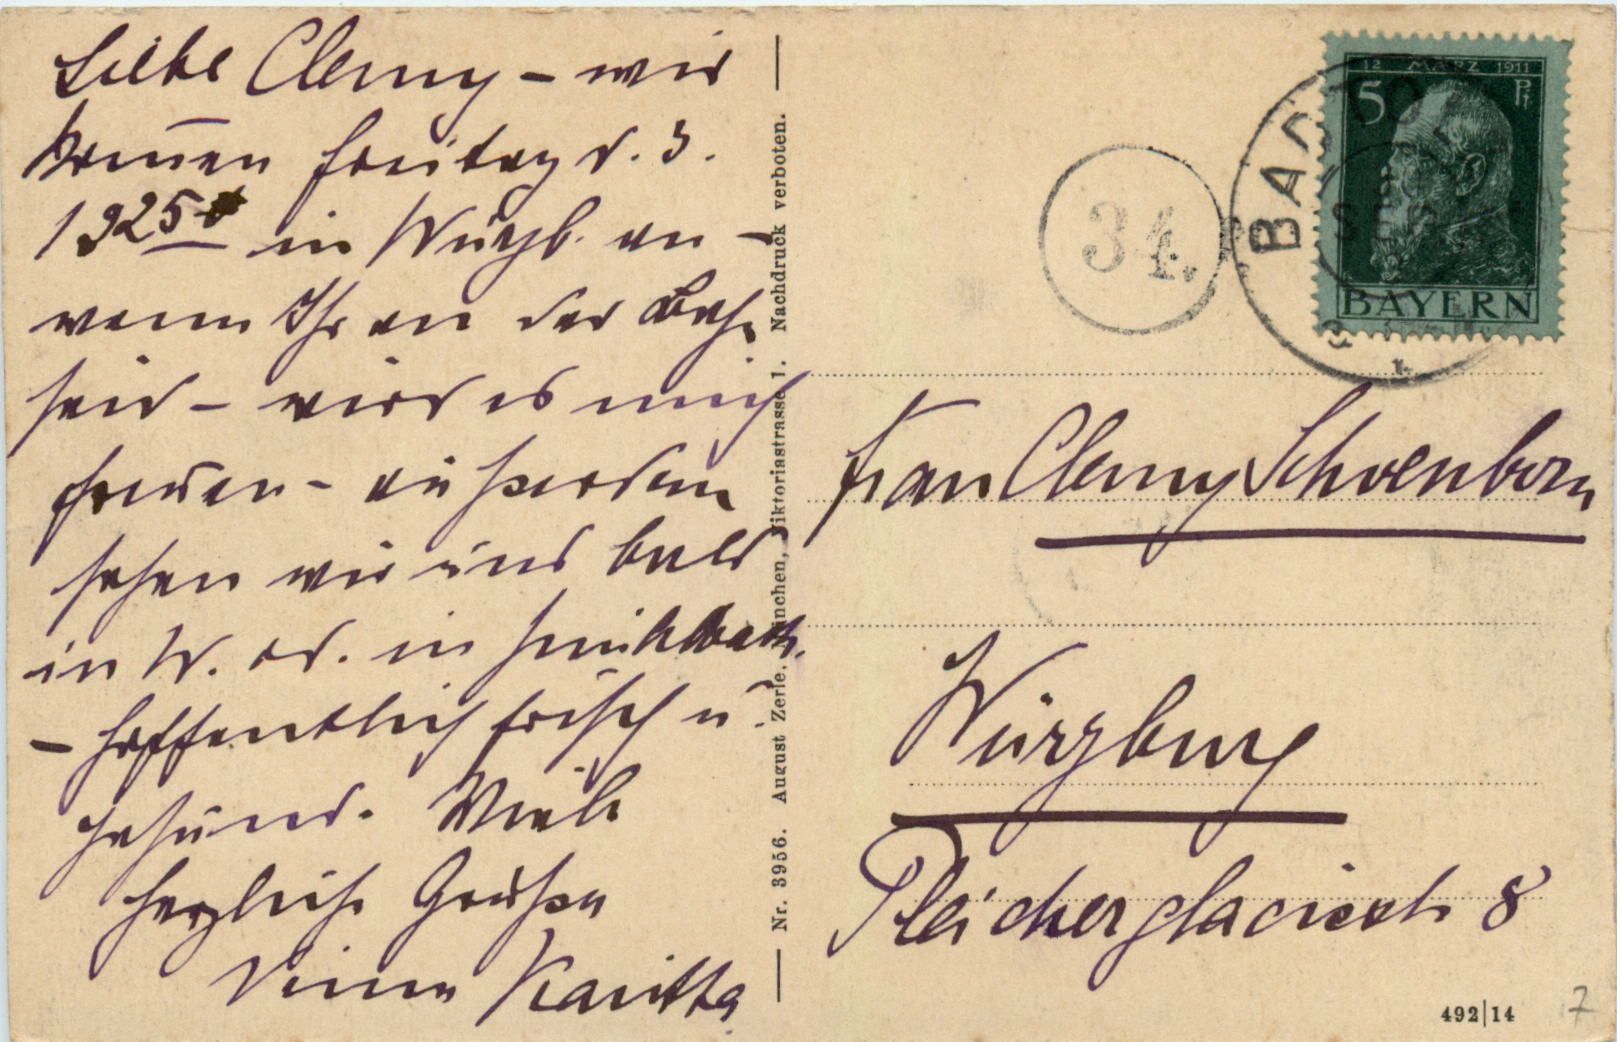 Liebe Clemy – wir
kommen Freitag d. 3.
1925 in Würzb. an –
wenn Ihr an der Bahn
seid – wird es mich
freuen – außerdem
sehen wir uns bald
in W. od. in
– hoffentlich frisch u.
gesund. Viele
herzliche Grüße
Deine
Nr. 3956. August Zerle, München, Viktoriastrasse 1. Nachdruck verboten.
12 MÄRZ 1911
5 Pf
BAYERN
BAD TÖ
SEP
34.
Frau Clemy Schoenborn
Würzburg
Pleicherglacisstr. 8
492|14
7